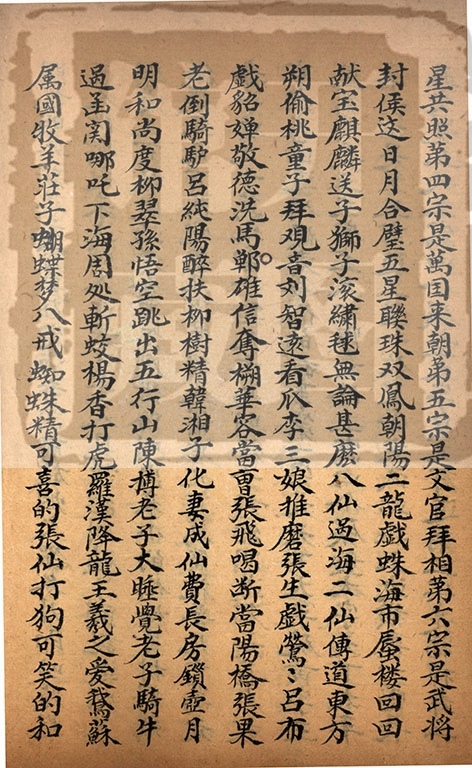 星共照第四宗是萬国来朝第五宗是文官拜相第六宗是武将
封侯这日月合璧五星聯珠双鳳朝陽二龍戲蛛海市蜃楼回回
献宝麒麟送子獅子滚繡毬無論甚麽八仙過海二仙傳道東方
朔偷桃童子拜观音刘智遠看瓜李三娘推磨張生戲鶯〻吕布
戲貂嬋敬德洗馬鄭碓信奪槊華容當曹張飛喝断當陽橋張果
老倒騎驴呂純陽醉扶柳樹精韓湘子化妻成仙費長房鎖壺月
明和尚度柳翠孫悟空跳出五行山陳摶老子大睡覺老子騎牛
過函関哪吒下海周处斬蛟楊香打虎羅漢降龍王羲之愛鵝蘇
属國牧羊莊子蝴蝶梦八戒蜘蛛精可喜的張仙打狗可笑的和